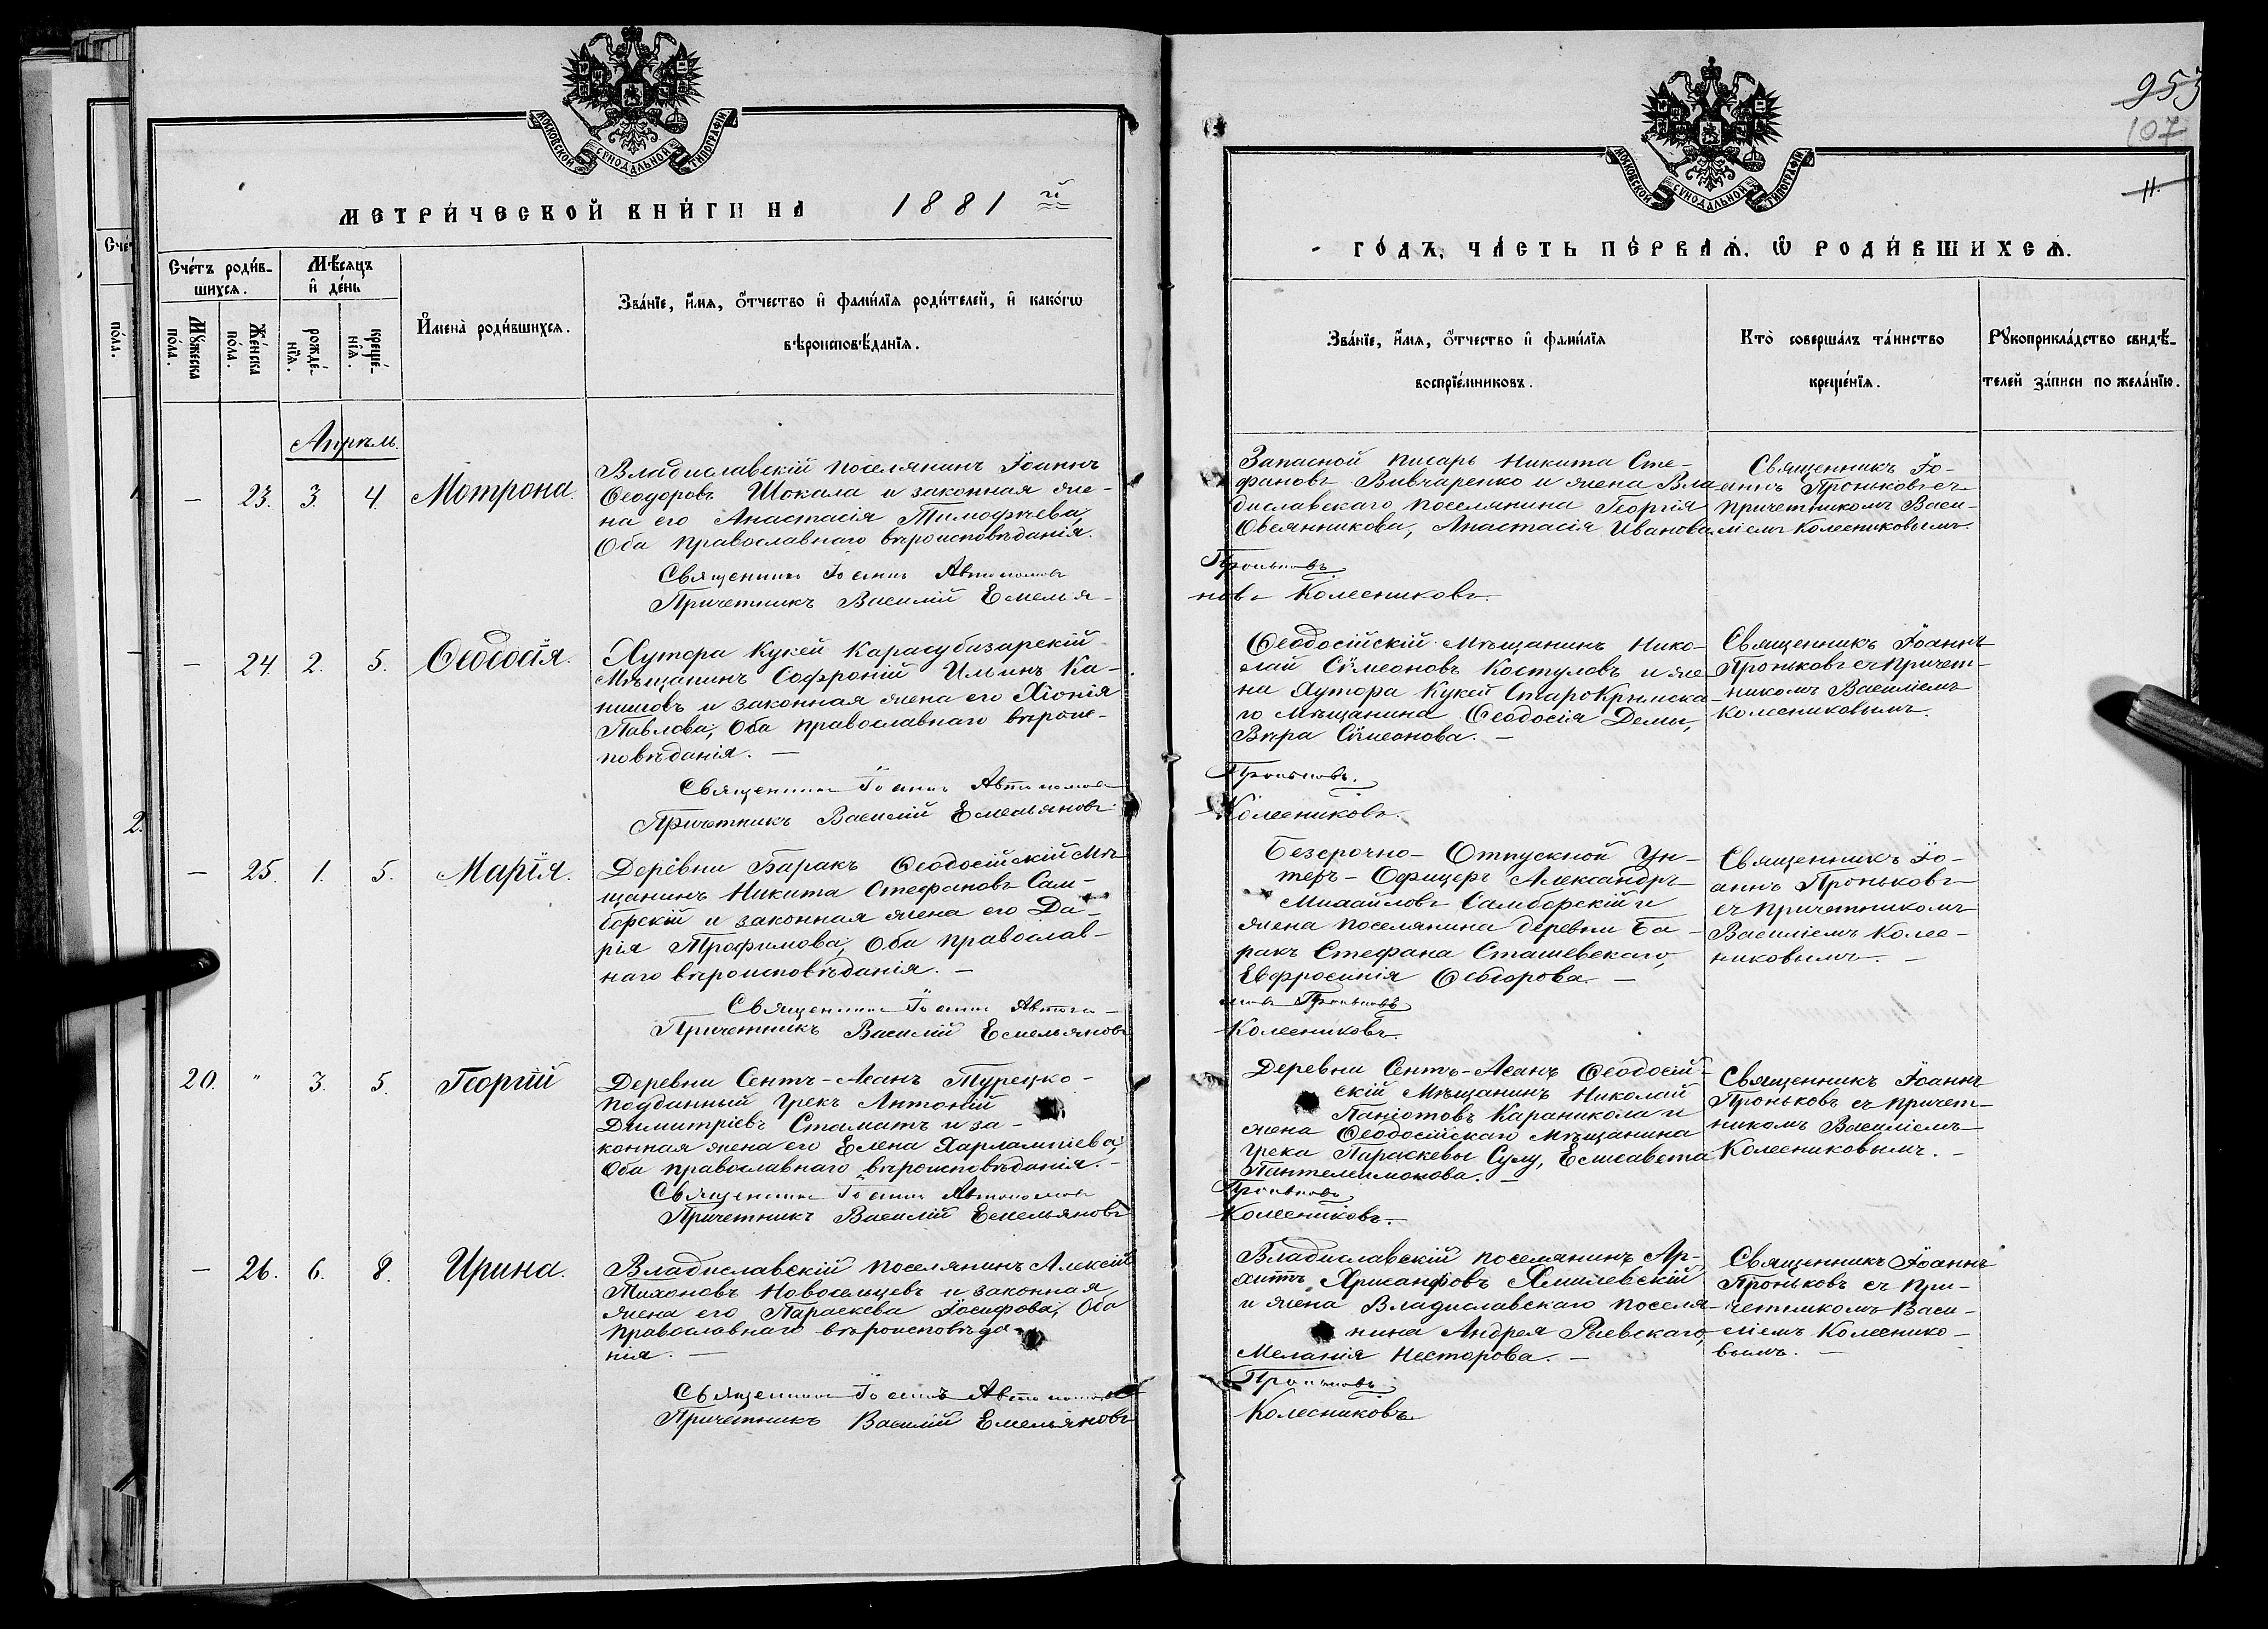 МОСКОВСКОЙ СѴНОДАЛЬНОЙ ТИПОГРАФІИ
МЕТРИ́ЧЕСКОЙ КНИ́ГИ НА 1881 й
Сче́тъ роди́в-
шихсѧ.
Мѣ́сяцъ
и҆ де́нь
Мꙋ́жеска
по́ла.
Же́нска
по́ла.
рожде́-
нїѧ.
креще́-
нїѧ.
И҆мена̀ роди́вшихсѧ.
Зва́нїе, и҆́мѧ, ѻ҆́тчество и҆ фамилїѧ роди́телей, и҆ како́гѡ
вѣроисповѣ́данїѧ.
Апрѣль.
– 23. 3. 4. Мотрона.
Владиславскій поселянинъ Іоаннъ
Ѳеодоровъ Шокала и законная же-
на его Анастасія Тимофѣева,
Оба православнаго вѣроисповѣданія.
Священникъ Іоаннъ Автономовъ
Причетникъ Василій Емелья-
– 24. 2. 5. Ѳеодосія.
Хутора Кукей Карасубазарскій
Мѣщанинъ Софроній Ильинъ Ка-
пшовъ и законная жена его Хіонія
Павлова, Оба православнаго вѣроис-
повѣданія. –
Священникъ Іоаннъ Автономовъ
Причетникъ Василій Емельяновъ
– 25. 1. 5. Марія.
Деревни Баракъ Ѳеодосійскій Мѣ-
щанинъ Никита Стефановъ Сам-
борскій и законная жена его Да-
рія Трофимова, Оба православ-
наго вѣроисповѣданія. –
Священникъ Іоаннъ Автоно-
Причетникъ Василій Емельяновъ
20. " 3. 5. Георгій
Деревни Сентъ-Асанъ Турецко-
подданный Грекъ Антоній
Димитріевъ Стаматъ и за-
конная жена его Елена Харлампіева,
Оба православнаго вѣроисповѣданія. –
Священникъ Іоаннъ Автономовъ
Причетникъ Василій Емельяновъ
– 26. 6. 8. Ирина.
Владиславскій поселянинъ Алексій
Тихоновъ Новосельцевъ и законная
жена его Параскева Іосифова, Оба
православнаго вѣроисповѣда-
нія. –
Священникъ Іоаннъ Автономовъ
Причетникъ Василій Емельяновъ
953
107
11.
МОСКОВСКОЙ СѴНОДАЛЬНОЙ ТИПОГРАФІИ
ГО́ДЪ, ЧА́СТЬ ПЕ́РВАѦ, Ѡ҆ РОДИ́ВШИХСѦ.
Зва́нїе, и҆́мѧ, ѻ҆́тчество и҆ фамилїѧ
воспрїе́мниковъ.
Кто̀ соверша́лъ та́инство
креще́нїѧ.
Рꙋкоприкла́дство свидѣ́-
телей за́писи по жела́нїю.
Запасной писарь Никита Сте-
фановъ Вивчаренко и жена Вла-
диславскаго поселянина Георгія
Овсянникова, Анастасія Иванова.
Проньковъ
новъ Колесниковъ.
Священникъ Іо-
аннъ Проньковъ съ
причетникомъ Васи-
ліемъ Колесниковымъ.
Ѳеодосійскій Мѣщанинъ Нико-
лай Сѵмеоновъ Костуловъ и же-
на Хутора Кукей СтароКрымска-
го мѣщанина Ѳеодосія Демы,
Вѣра Сѵмеонова. –
Проньковъ.
Колесниковъ.
Священникъ Іоаннъ
Проньковъ съ причет-
никомъ Василіемъ
Колесниковымъ.
Безсрочно-Отпускной Ун-
теръ-Офицеръ Александръ
Михайловъ Самборскій и
жена поселянина деревни Ба-
ракъ Стефана Сташевскаго,
Евфросинія Ѳеодорова. –
мовъ Проньковъ
Колесниковъ.
Священникъ Іо-
аннъ Проньковъ
съ причетникомъ
Василіемъ Колес-
никовымъ. –
Деревни Сентъ-Асанъ Ѳеодосій-
скій Мѣщанинъ Николай
Паніотовъ Караникола и
жена Ѳеодосійскаго Мѣщанина
Грека Параскевы Сулу, Елисавета
Пантелеимонова. –
Проньковъ
Колесниковъ.
Священникъ Іоаннъ
Проньковъ съ причет-
никомъ Василіемъ
Колесниковымъ. –
Владиславскій поселянинъ Ар-
хипъ Хрисанфовъ Хмилевскій
и жена Владиславскаго поселя-
нина Андрея Раевскаго,
Меланія Несторова. –
Проньковъ
Колесниковъ
Священникъ Іоаннъ
Проньковъ съ при-
четникомъ Васи-
ліемъ Колеснико-
вымъ. –